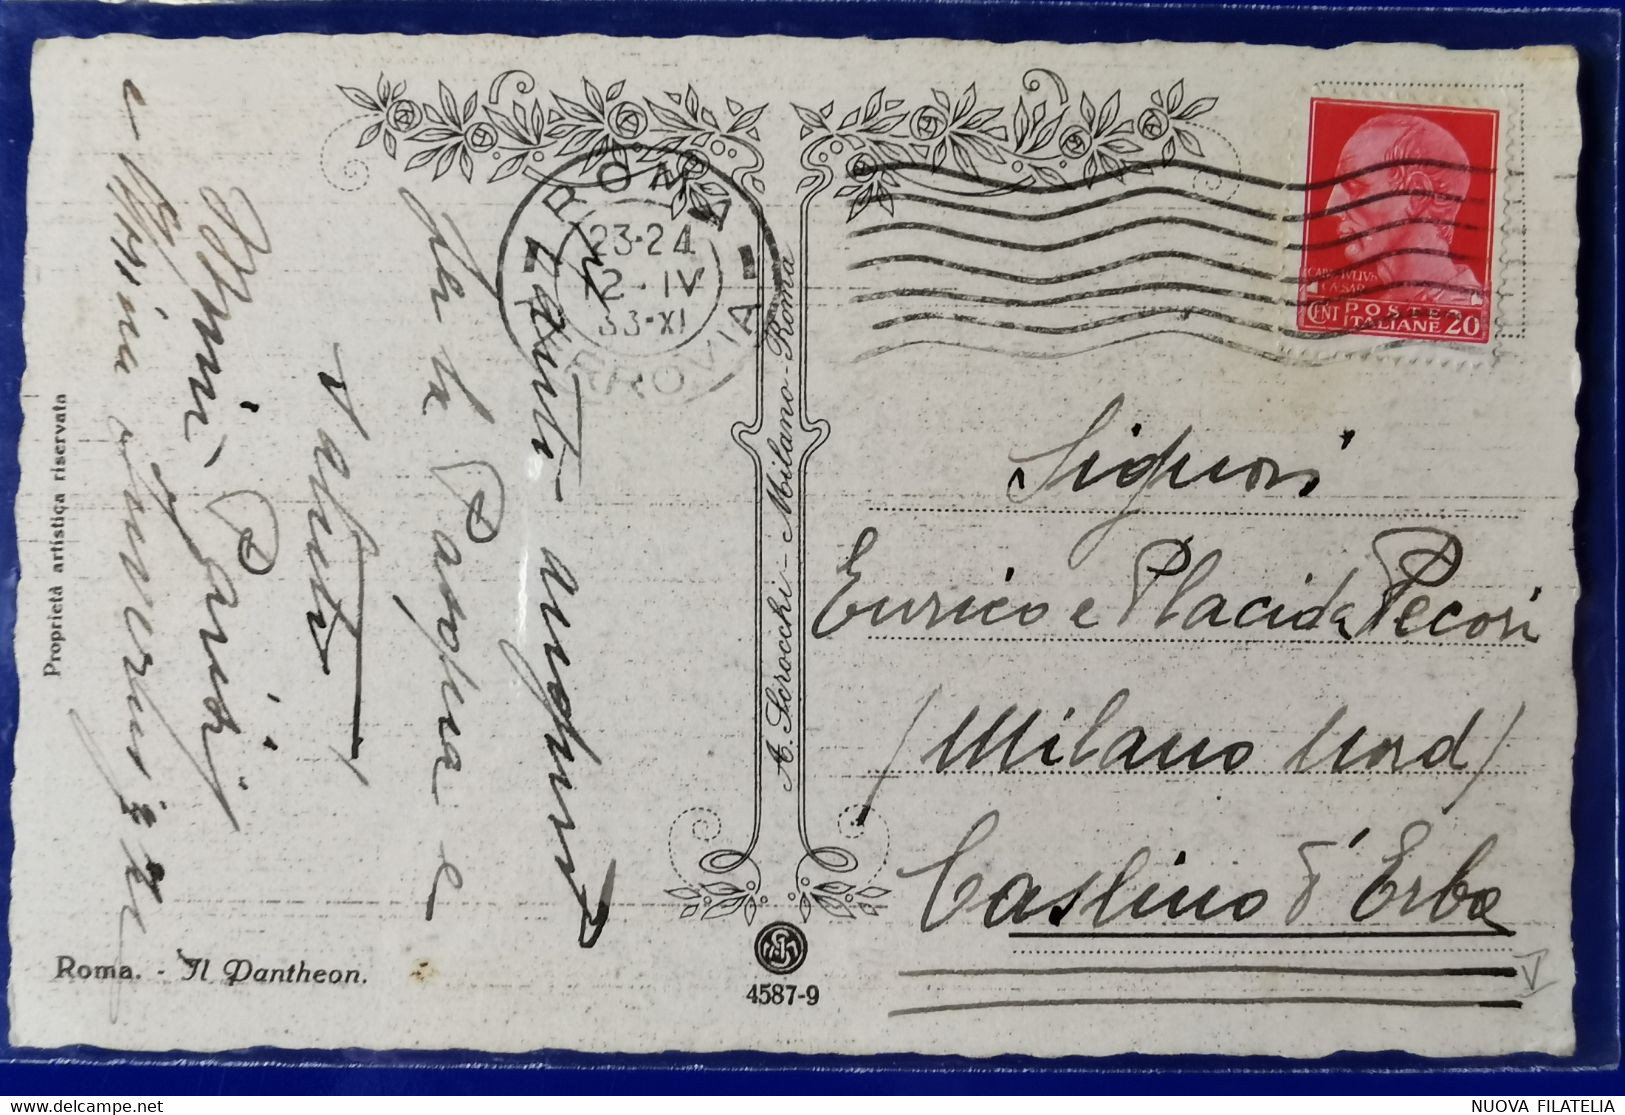 Tanti auguri
per la Pasqua e
saluti
Proprietà artistica riservata
Roma. - Il Pantheon.
A. Scrocchi - Milano - Roma
4587-9
ROMA
23-24
12-IV
33-XI
FERROVIA
CAIVS IVLIVS
CAESAR
CENT POSTE
ITALIANE 20
Signori
Enrico e Placida Pecori
/Milano Nord/
Caslino d'Erba
delcampe.net
NUOVA FILATELIA